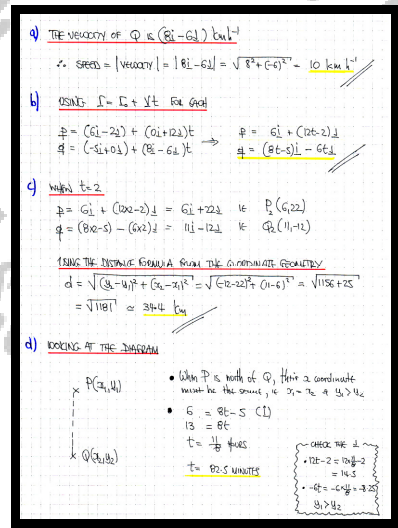 a) THE VELOCITY OF Q IS (8i - 6j) km h⁻¹
∴ SPEED = |VELOCITY| = |8i - 6j| = √(8² + (-6)²) = 10 km h⁻¹
b) USING r = r₀ + vt FOR EACH
p = (6i - 2j) + (0i + 12j)t ⇒ p = 6i + (12t - 2)j
q = (-5i + 0j) + (8i - 6j)t q = (8t - 5)i - 6tj
c) WHEN t = 2
p = 6i + (12×2 - 2)j = 6i + 22j IE P₂(6,22)
q = (8×2 - 5) - (6×2)j = 11i - 12j IE Q₂(11,-12)
USING THE DISTANCE FORMULA FROM THE COORDINATE GEOMETRY
d = √((y₂ - y₁)² + (x₂ - x₁)²) = √((-12 - 22)² + (11 - 6)²) = √(1156 + 25)
= √1181 ≃ 34.4 km
d) LOOKING AT THE DIAGRAM
P(x₁,y₁)
Q(x₂,y₂)
• When P is north of Q, their x coordinate
must be the same, ie x₁ = x₂ & y₁ > y₂
• 6 = 8t - 5 (i)
13 = 8t
t = 11/8 hours
t = 82.5 MINUTES
CHECK THE j
• 12t - 2 = 12×11/8 - 2
= 14.5
• -6t = -6×11/8 = -8.25
y₁ > y₂